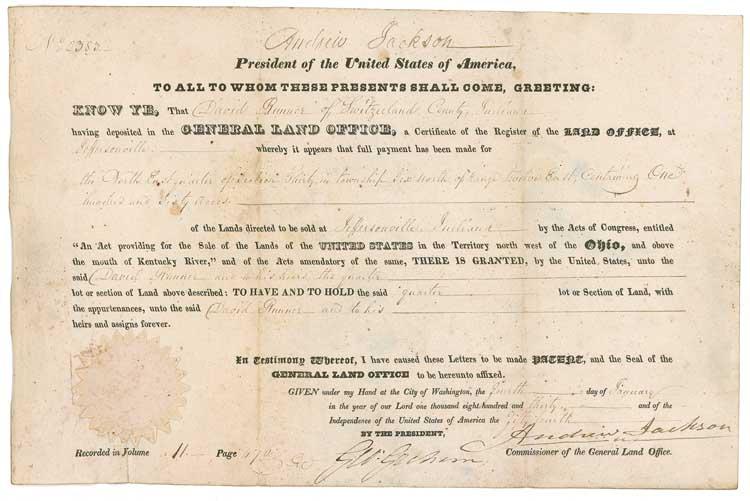 No 2383.
Andrew Jackson
President of the United States of America,
TO ALL TO WHOM THESE PRESENTS SHALL COME, GREETING:
KNOW YE, That David Runner of Switzerland County, Indiana
having deposited in the GENERAL LAND OFFICE, a Certificate of the Register of the LAND OFFICE, at
Jeffersonville whereby it appears that full payment has been made for
the North East quarter of Section Thirty, in township Six North, of range Twelve East, Containing One
hundred and Sixty acres
of the Lands directed to be sold at Jeffersonville Indiana by the Acts of Congress, entitled
"An Act providing for the Sale of the Lands of the UNITED STATES in the Territory north west of the Ohio, and above
the mouth of Kentucky River," and of the Acts amendatory of the same, THERE IS GRANTED, by the United States, unto the
said David Runner and his heirs the quarter
lot or section of Land above described: TO HAVE AND TO HOLD the said quarter lot or Section of Land, with
the appurtenances, unto the said David Runner and to his
heirs and assigns forever.
In Testimony Whereof, I have caused these Letters to be made PATENT, and the Seal of the
GENERAL LAND OFFICE to be hereunto affixed.
GIVEN under my Hand at the City of Washington, the fourth day of January
in the year of our Lord one thousand eight hundred and thirty and of the
Independence of the United States of America the fifty fourth
BY THE PRESIDENT, Andrew Jackson
Recorded in Volume 11 Page Commissioner of the General Land Office.